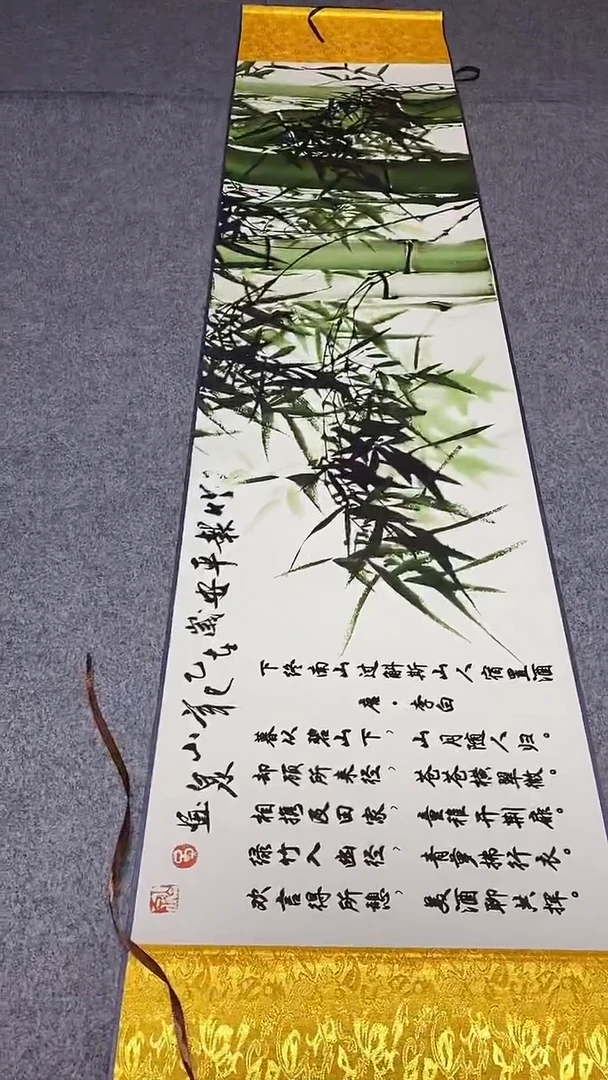 竹报平安 岁在乙巳
下终南山过斛斯山人宿置酒
唐·李白
暮从碧山下，山月随人归。
却顾所来径，苍苍横翠微。
相携及田家，童稚开荆扉。
绿竹入幽径，青萝拂行衣。
欢言得所憩，美酒聊共挥。